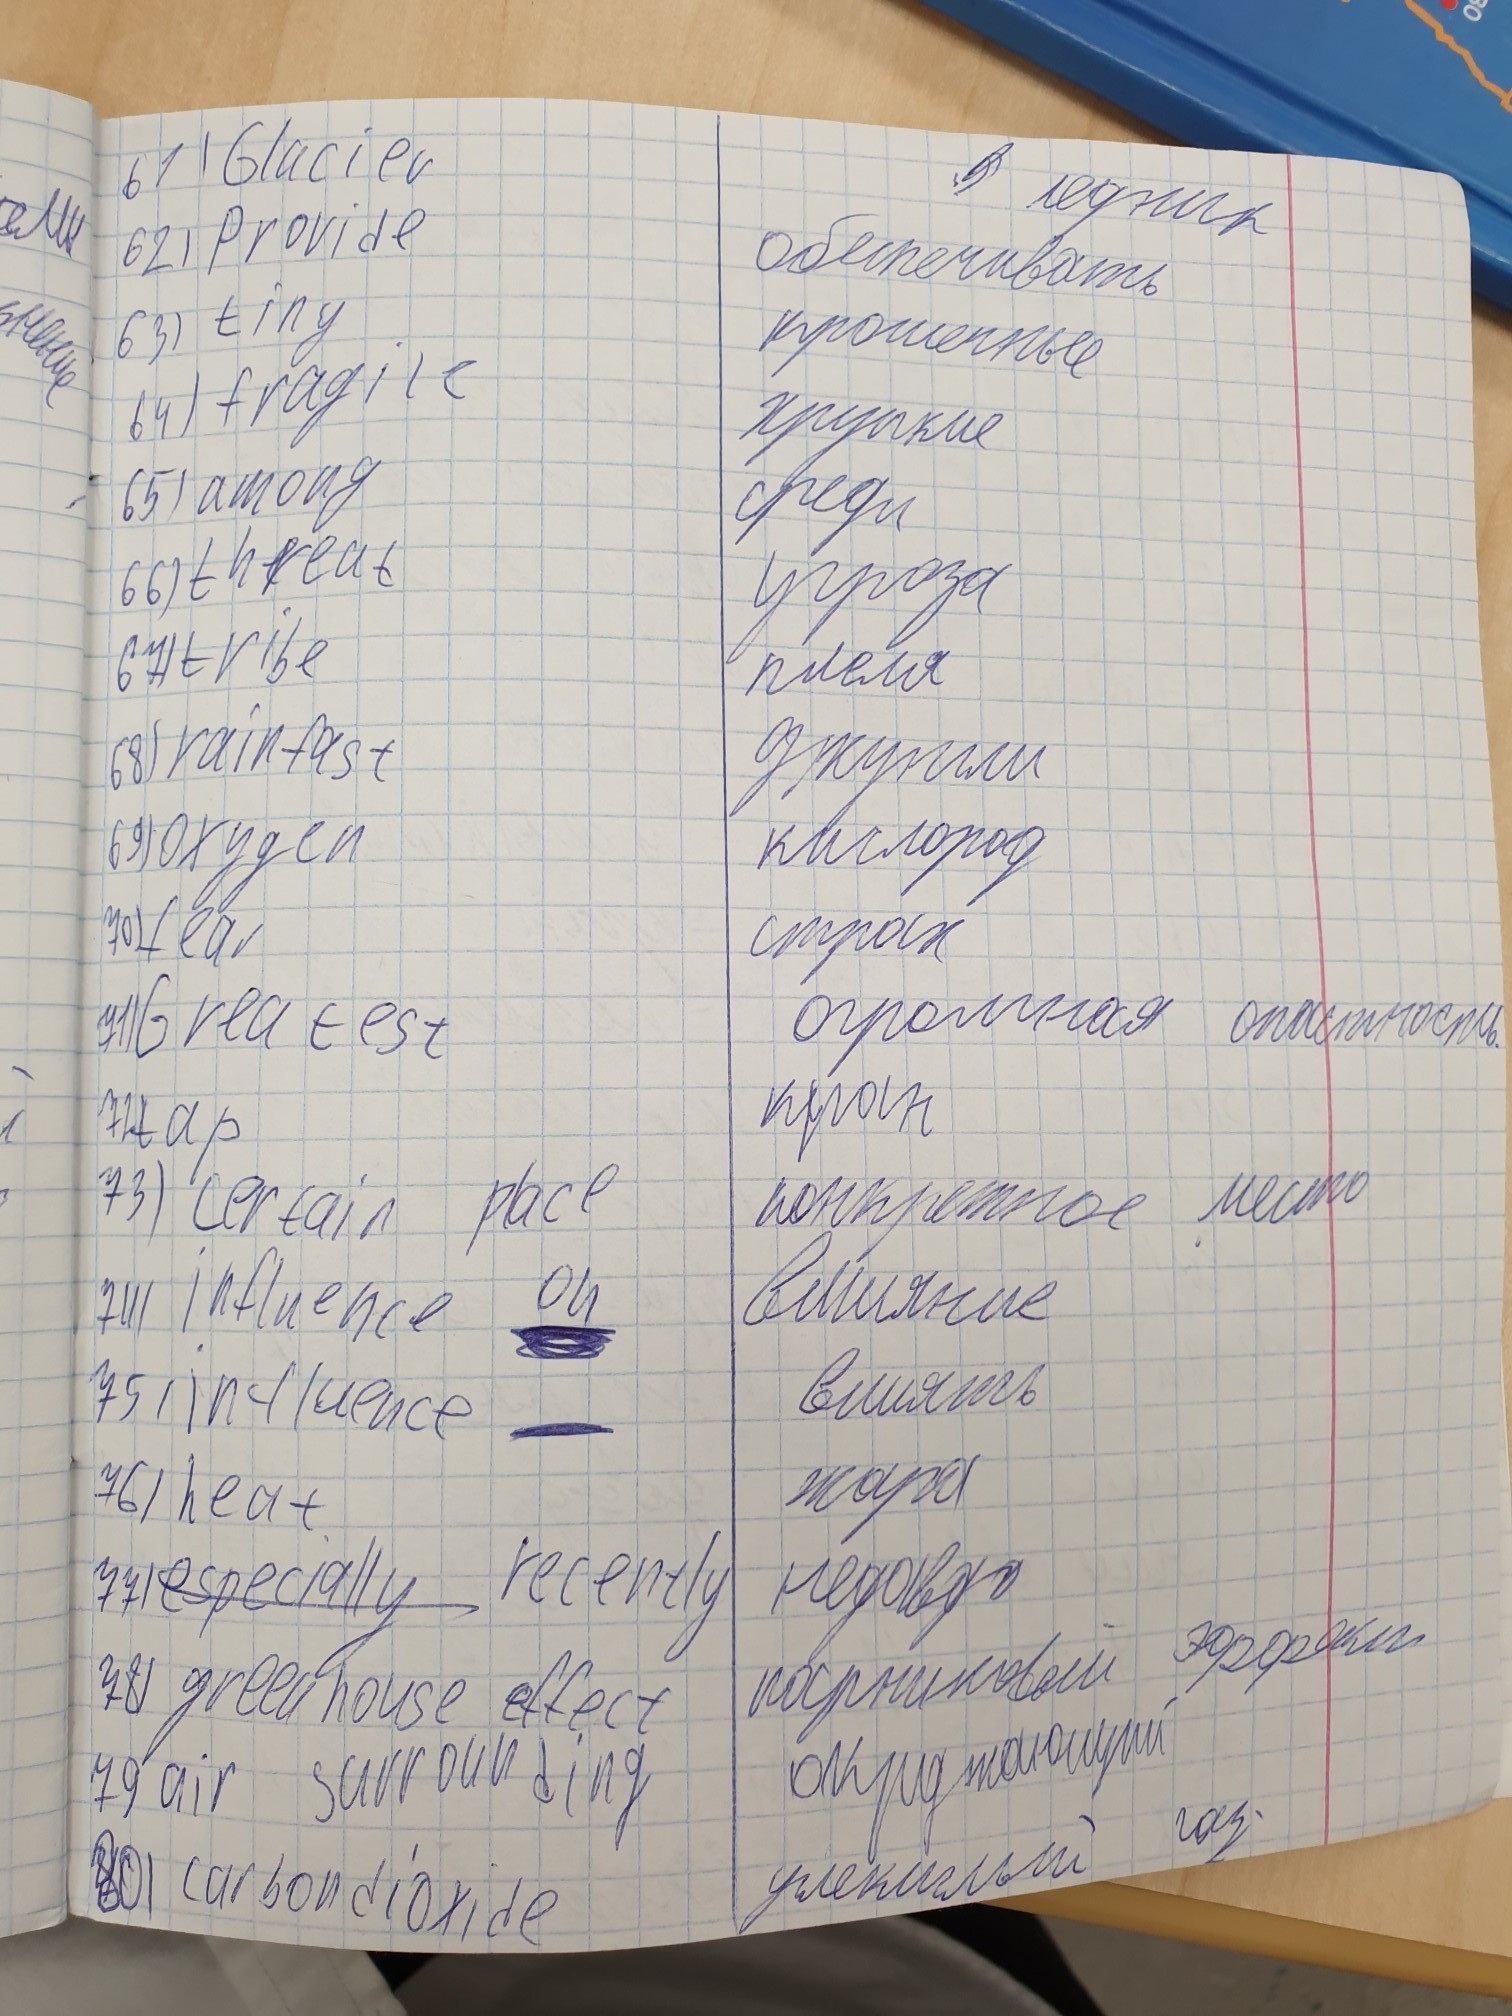 61) Glacier ледник
62) Provide обеспечивать
63) tiny крошечные
64) fragile хрупкие
65) among среди
66) threat угроза
67) tribe племя
68) rainfast джунгли
69) oxygen кислород
70) fear страх
71) Greatest огромная опастность.
72) tap кран
73) certain place конкретное место
74) influence on влияние
75) influence влиять
76) heat жара
77) especially recently недавно
78) greenhouse effect парниковый
79 air surrounding окруджающий
80) carbondioxide углекислый газ.